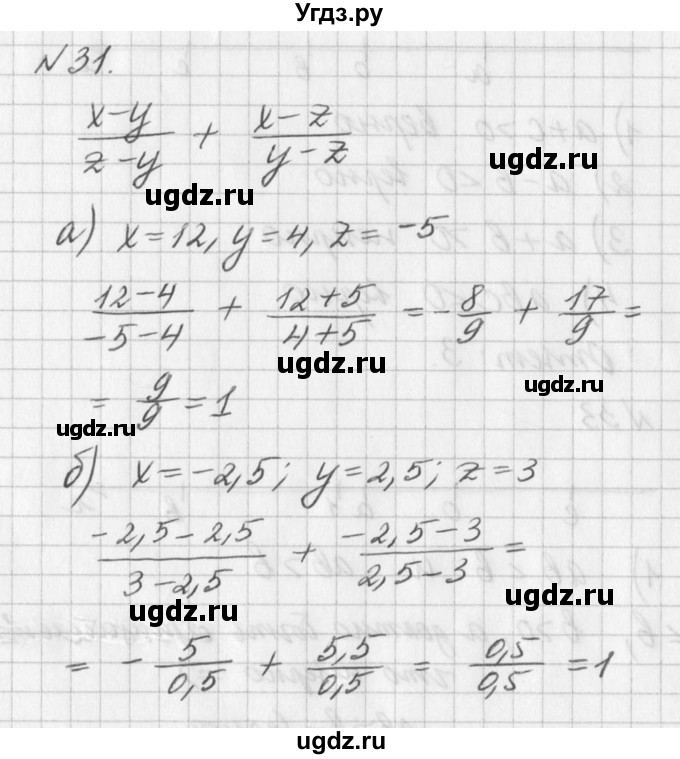 Угдз.ру
N 31.
(x-y)/(z-y) + (x-z)/(y-z)
ugdz.ru
ugdz.ru
а) x=12, y=4, z=-5
(12-4)/(-5-4) + (12+5)/(4+5) = -8/9 + 17/9 =
ugdz.ru
ugdz.ru
= 9/9 = 1
ugdz.ru
б) x=-2,5; y=2,5; z=3
(-2,5-2,5)/(3-2,5) + (-2,5-3)/(2,5-3) =
ugdz.ru
ugdz.ru
= -5/0,5 + 5,5/0,5 = 0,5/0,5 = 1
ugdz.ru
ugdz.ru
ugdz.ru